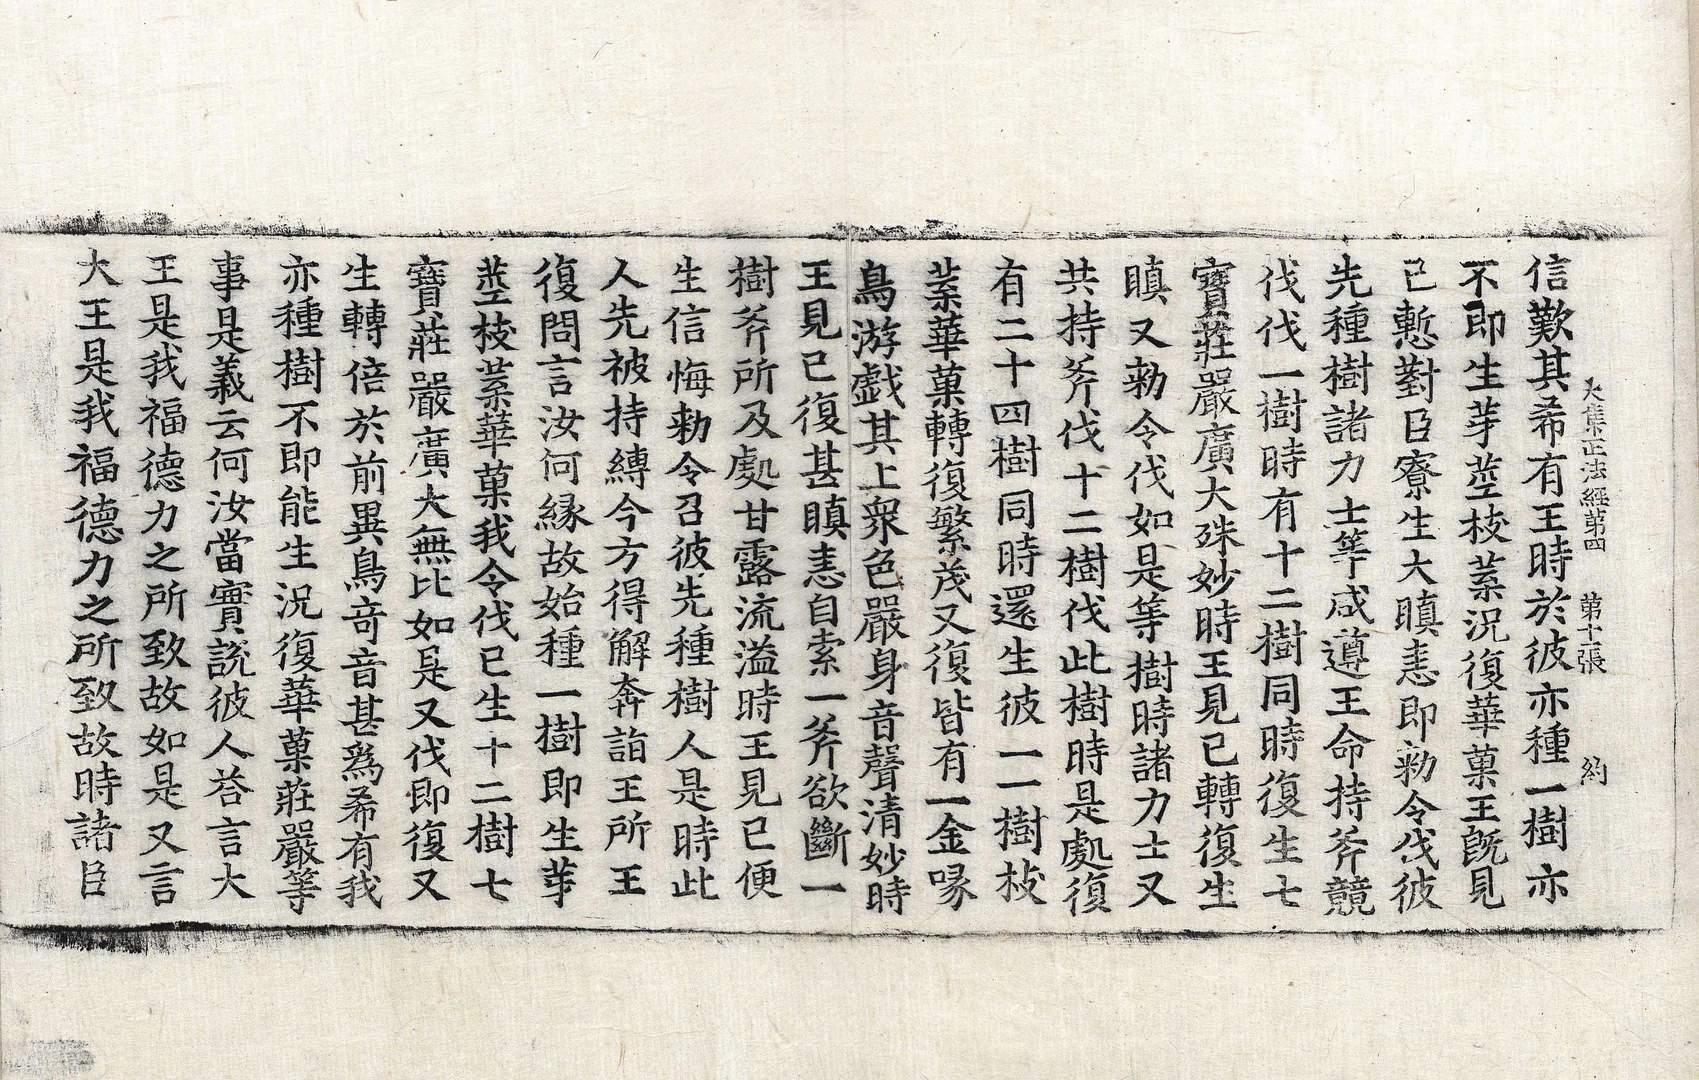 大集正法經第四　第十二張　約
信歎其希有王時於彼亦種一樹亦
不即生芽莖枝葉況復華菓王旣見
已慙對臣寮生大瞋恚即勑令伐彼
先種樹諸力士等咸遵王命持斧競
伐伐一樹時有十二樹同時復生七
寶莊嚴廣大殊妙時王見已轉復生
瞋又勑令伐如是等樹時諸力士又
共持斧伐十二樹伐此樹時是處復
有二十四樹同時還生彼一一樹枝
葉華菓轉復繁茂又復皆有一金喙
鳥游戲其上衆色嚴身音聲清妙時
王見已復甚瞋恚自索一斧欲斷一
樹斧所及處甘露流溢時王見已便
生信悔勑令召彼先種樹人是時此
人先被持縛今方得解奔詣王所王
復問言汝何緣故始種一樹即生芽
莖枝葉華菓我令伐已生十二樹七
寶莊嚴廣大無比如是又伐即復又
生轉倍於前異鳥奇音甚爲希有我
亦種樹不即能生況復華菓莊嚴等
事是義云何汝當實說彼人荅言大
王是我福德力之所致故如是又言
大王是我福德力之所致故時諸臣